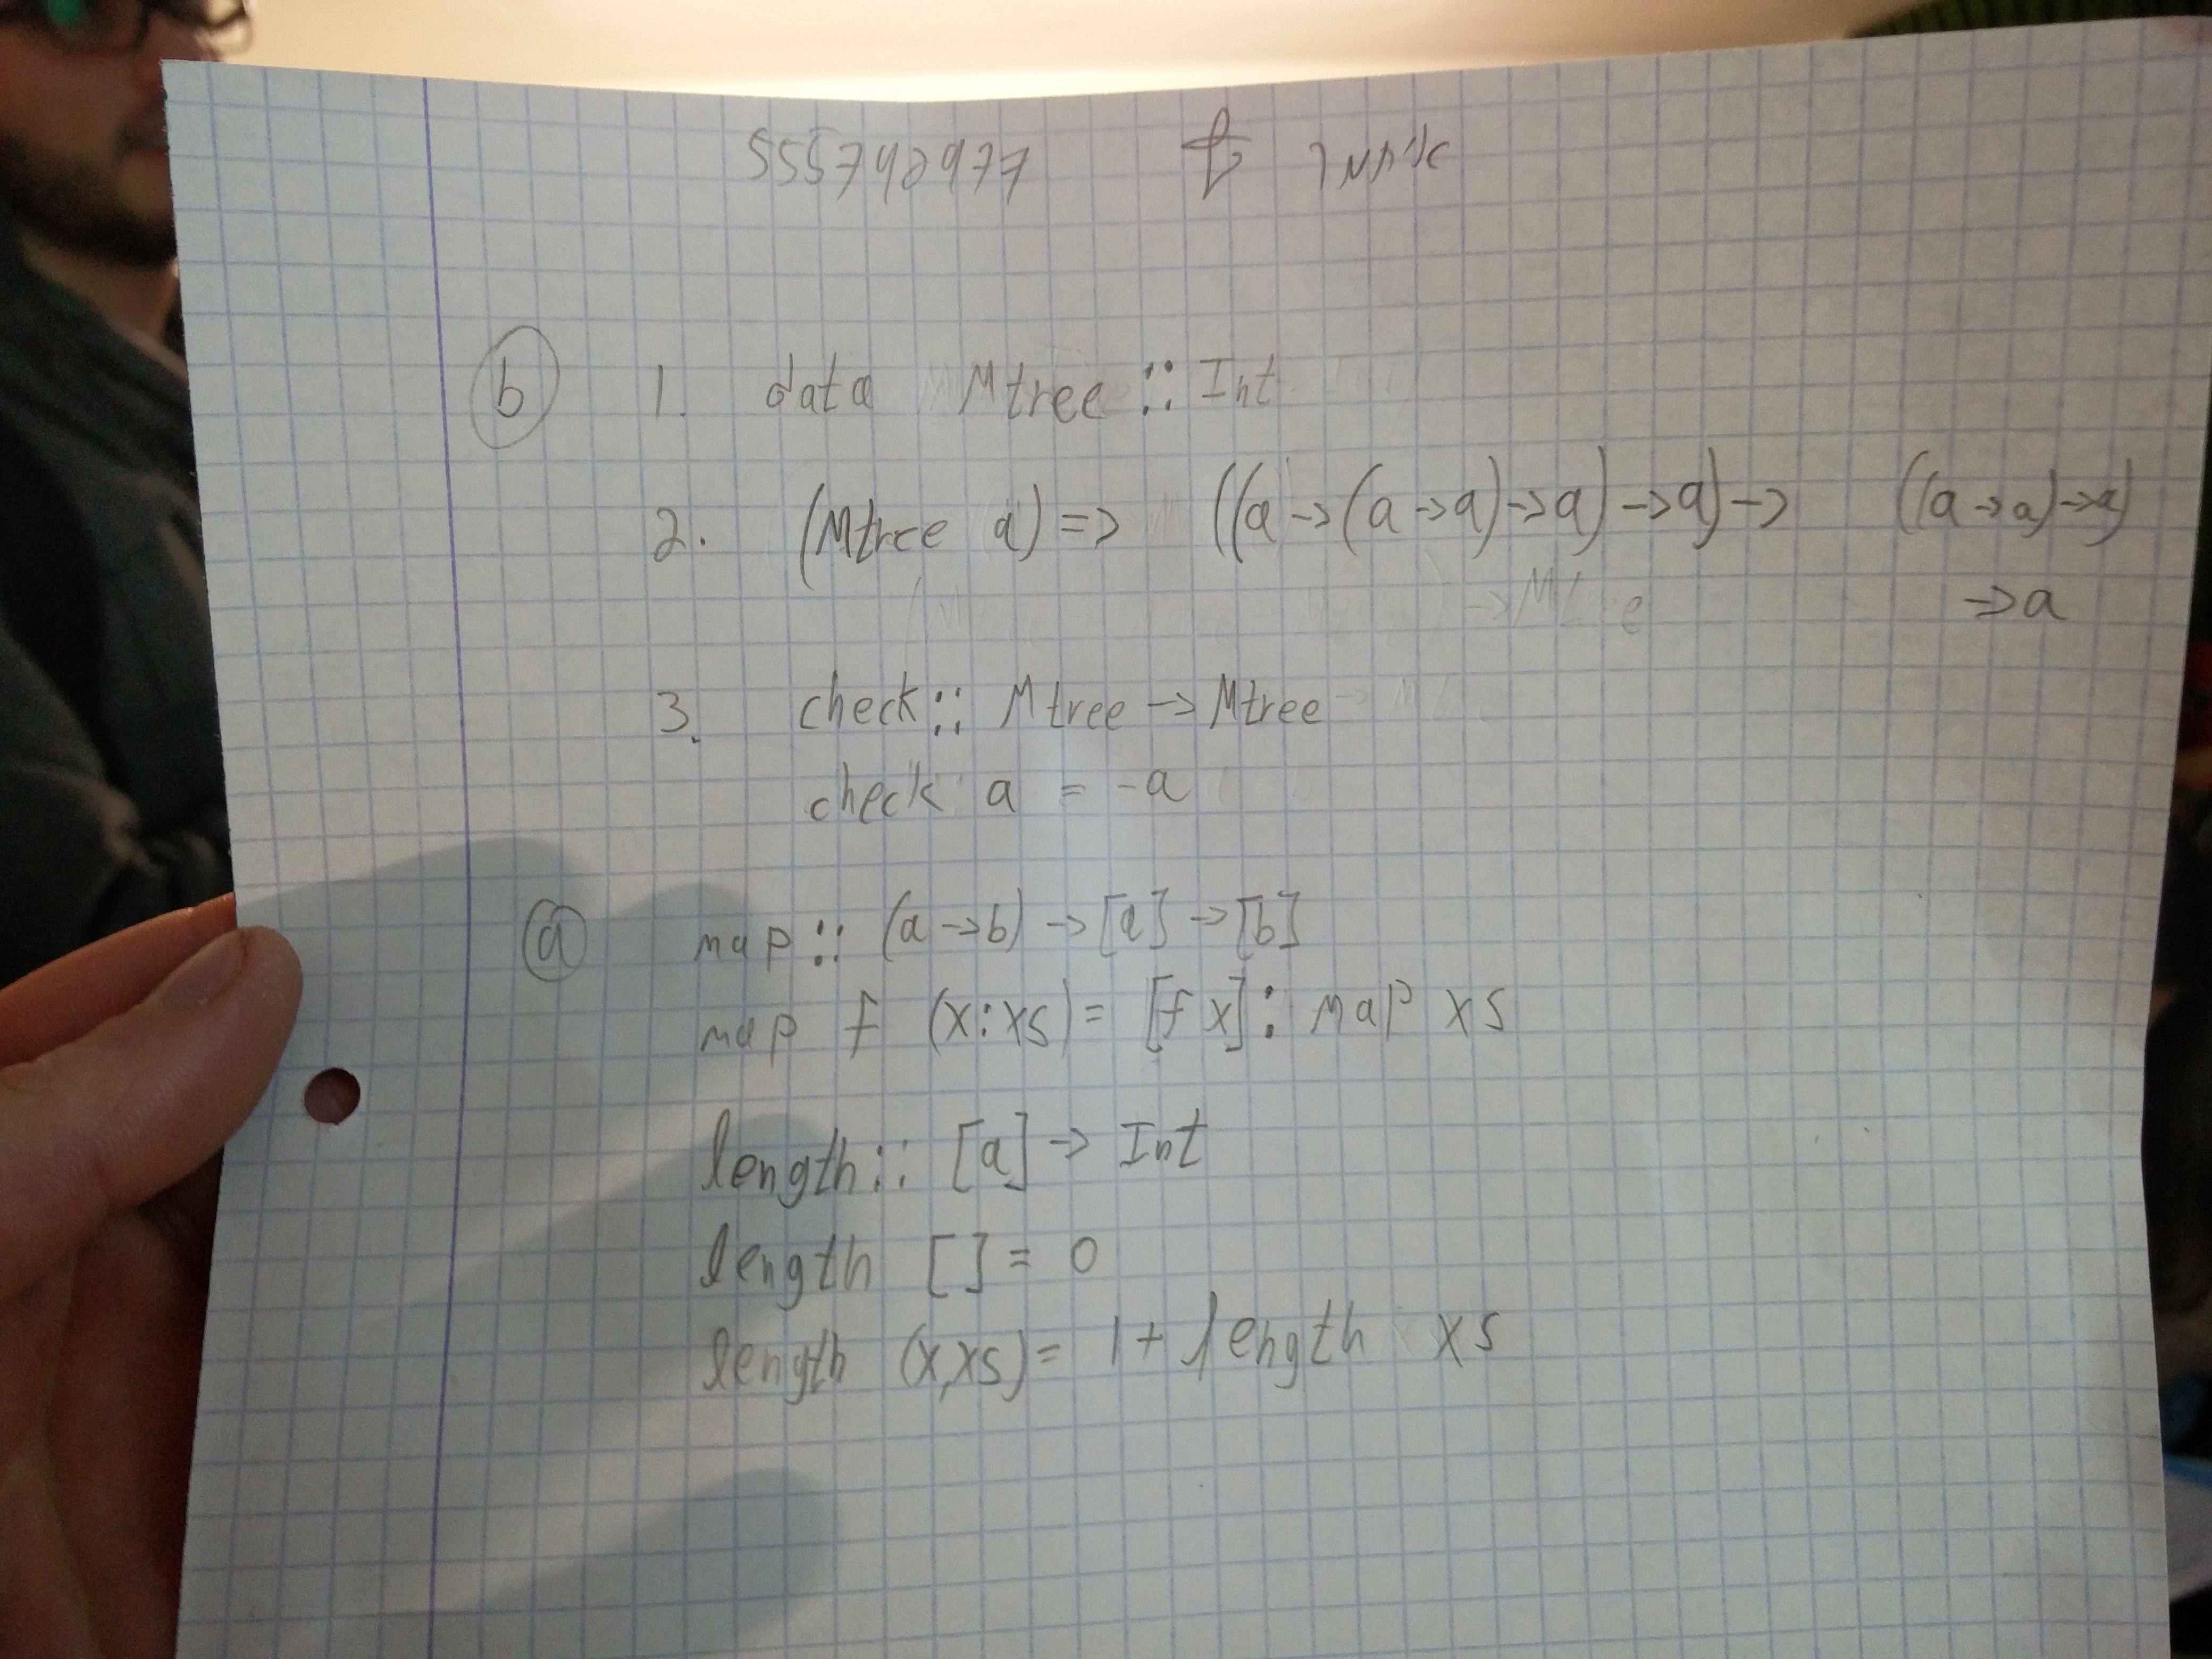 555742977
b 1. data Mtree :: Int
2. (Mtree a) => ((a -> (a -> a) -> a) -> a) -> ((a -> a) -> a)
-> a
3. check :: Mtree -> Mtree
check a = -a
a map :: (a -> b) -> [a] -> [b]
map f (x:xs) = [f x] : map xs
length :: [a] -> Int
length [] = 0
length (x,xs) = 1 + length xs